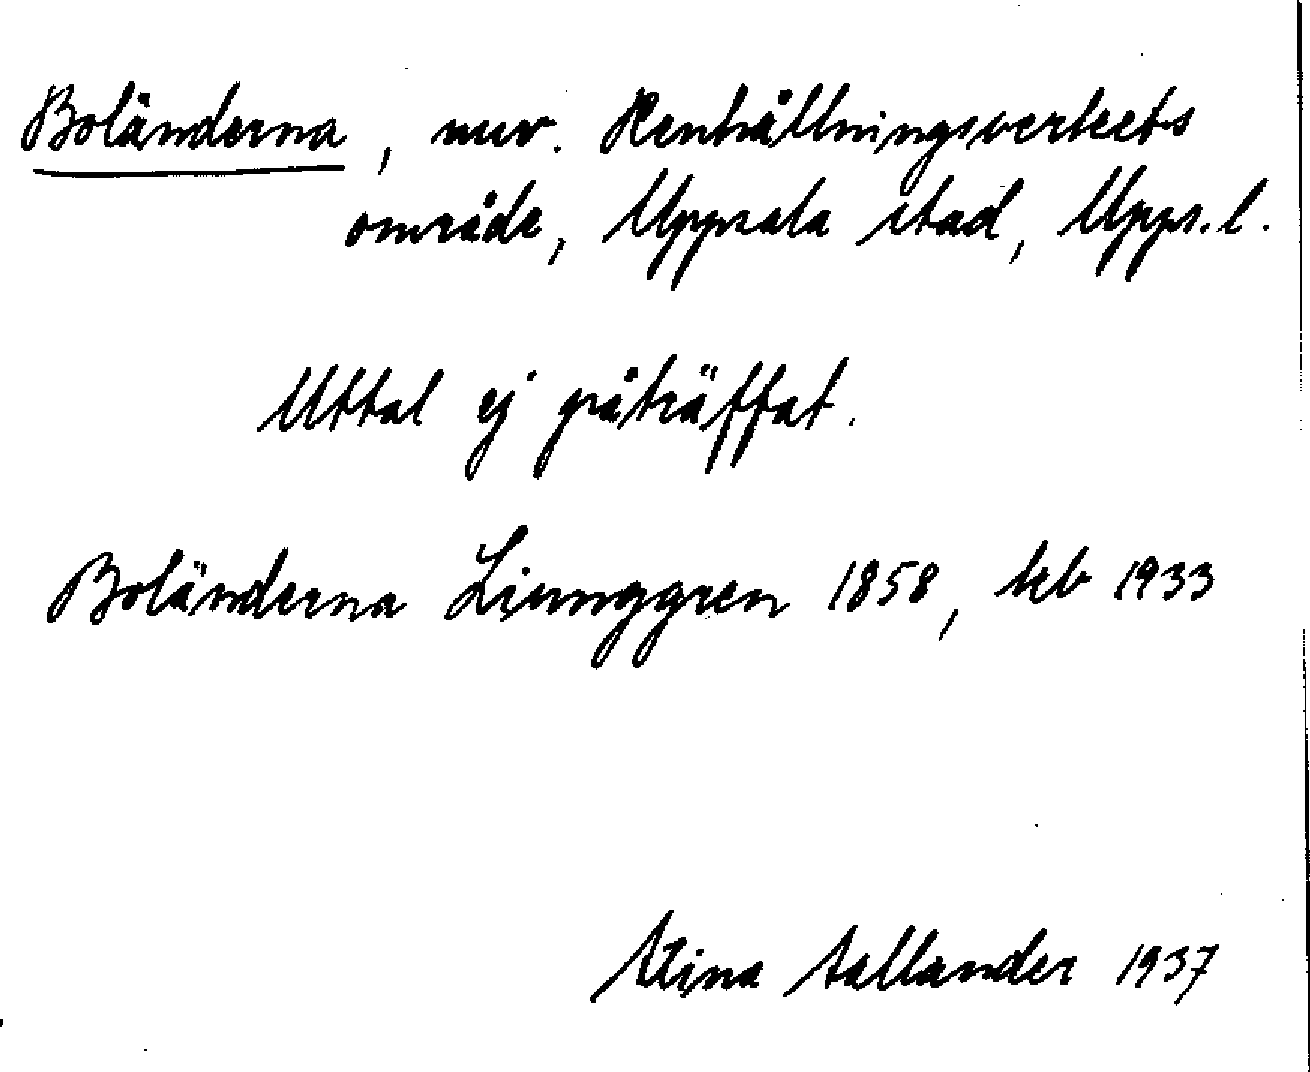 Boländerna, nuv. Renhållningsverkets
område, Uppsala stad, Upps. l.
Uttal ej påträffat.
Boländerna Ljunggren 1858, lkb 1933
Stina Sallander 1937